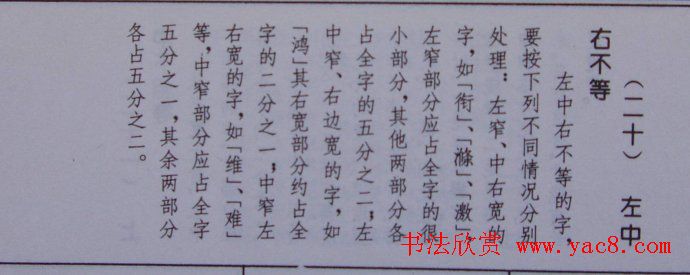 （二十）　左中
右不等
左中右不等的字，
要按下列不同情况分别
处理：左窄、中右宽的
字，如「衔」、「滌」、「激」，
左窄部分应占全字的很
小部分，其他两部分各
占全字的五分之二；左
中窄、右边宽的字，如
「鸿」其右宽部分约占全
字的二分之一；中窄左
右宽的字，如「维」、「难」
等，中窄部分应占全字
五分之一，其余两部分
各占五分之二。
书法欣赏 www.yac8.com